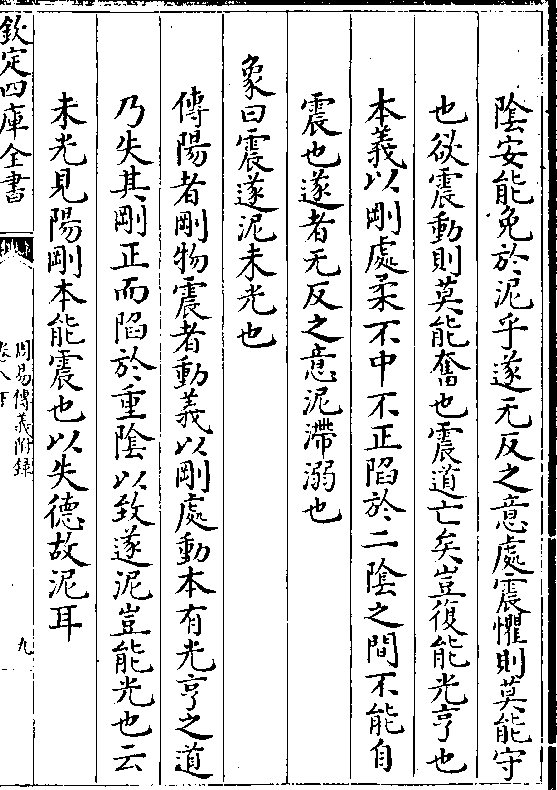 陰安能免於泥乎遂无反之意處震懼則莫能守
也欲震動則莫能奮也震道亡矣豈復能光亨也
本義以剛處柔不中不正陷於二陰之間不能自
震也遂者无反之意泥滯溺也
象曰震遂泥未光也
傳陽者剛物震者動義以剛處動本有光亨之道
乃失其剛正而陷於重陰以致遂泥豈能光也云
未光見陽剛本能震也以失德故泥耳
欽定四庫全書
周易傳義附録
卷八下
九